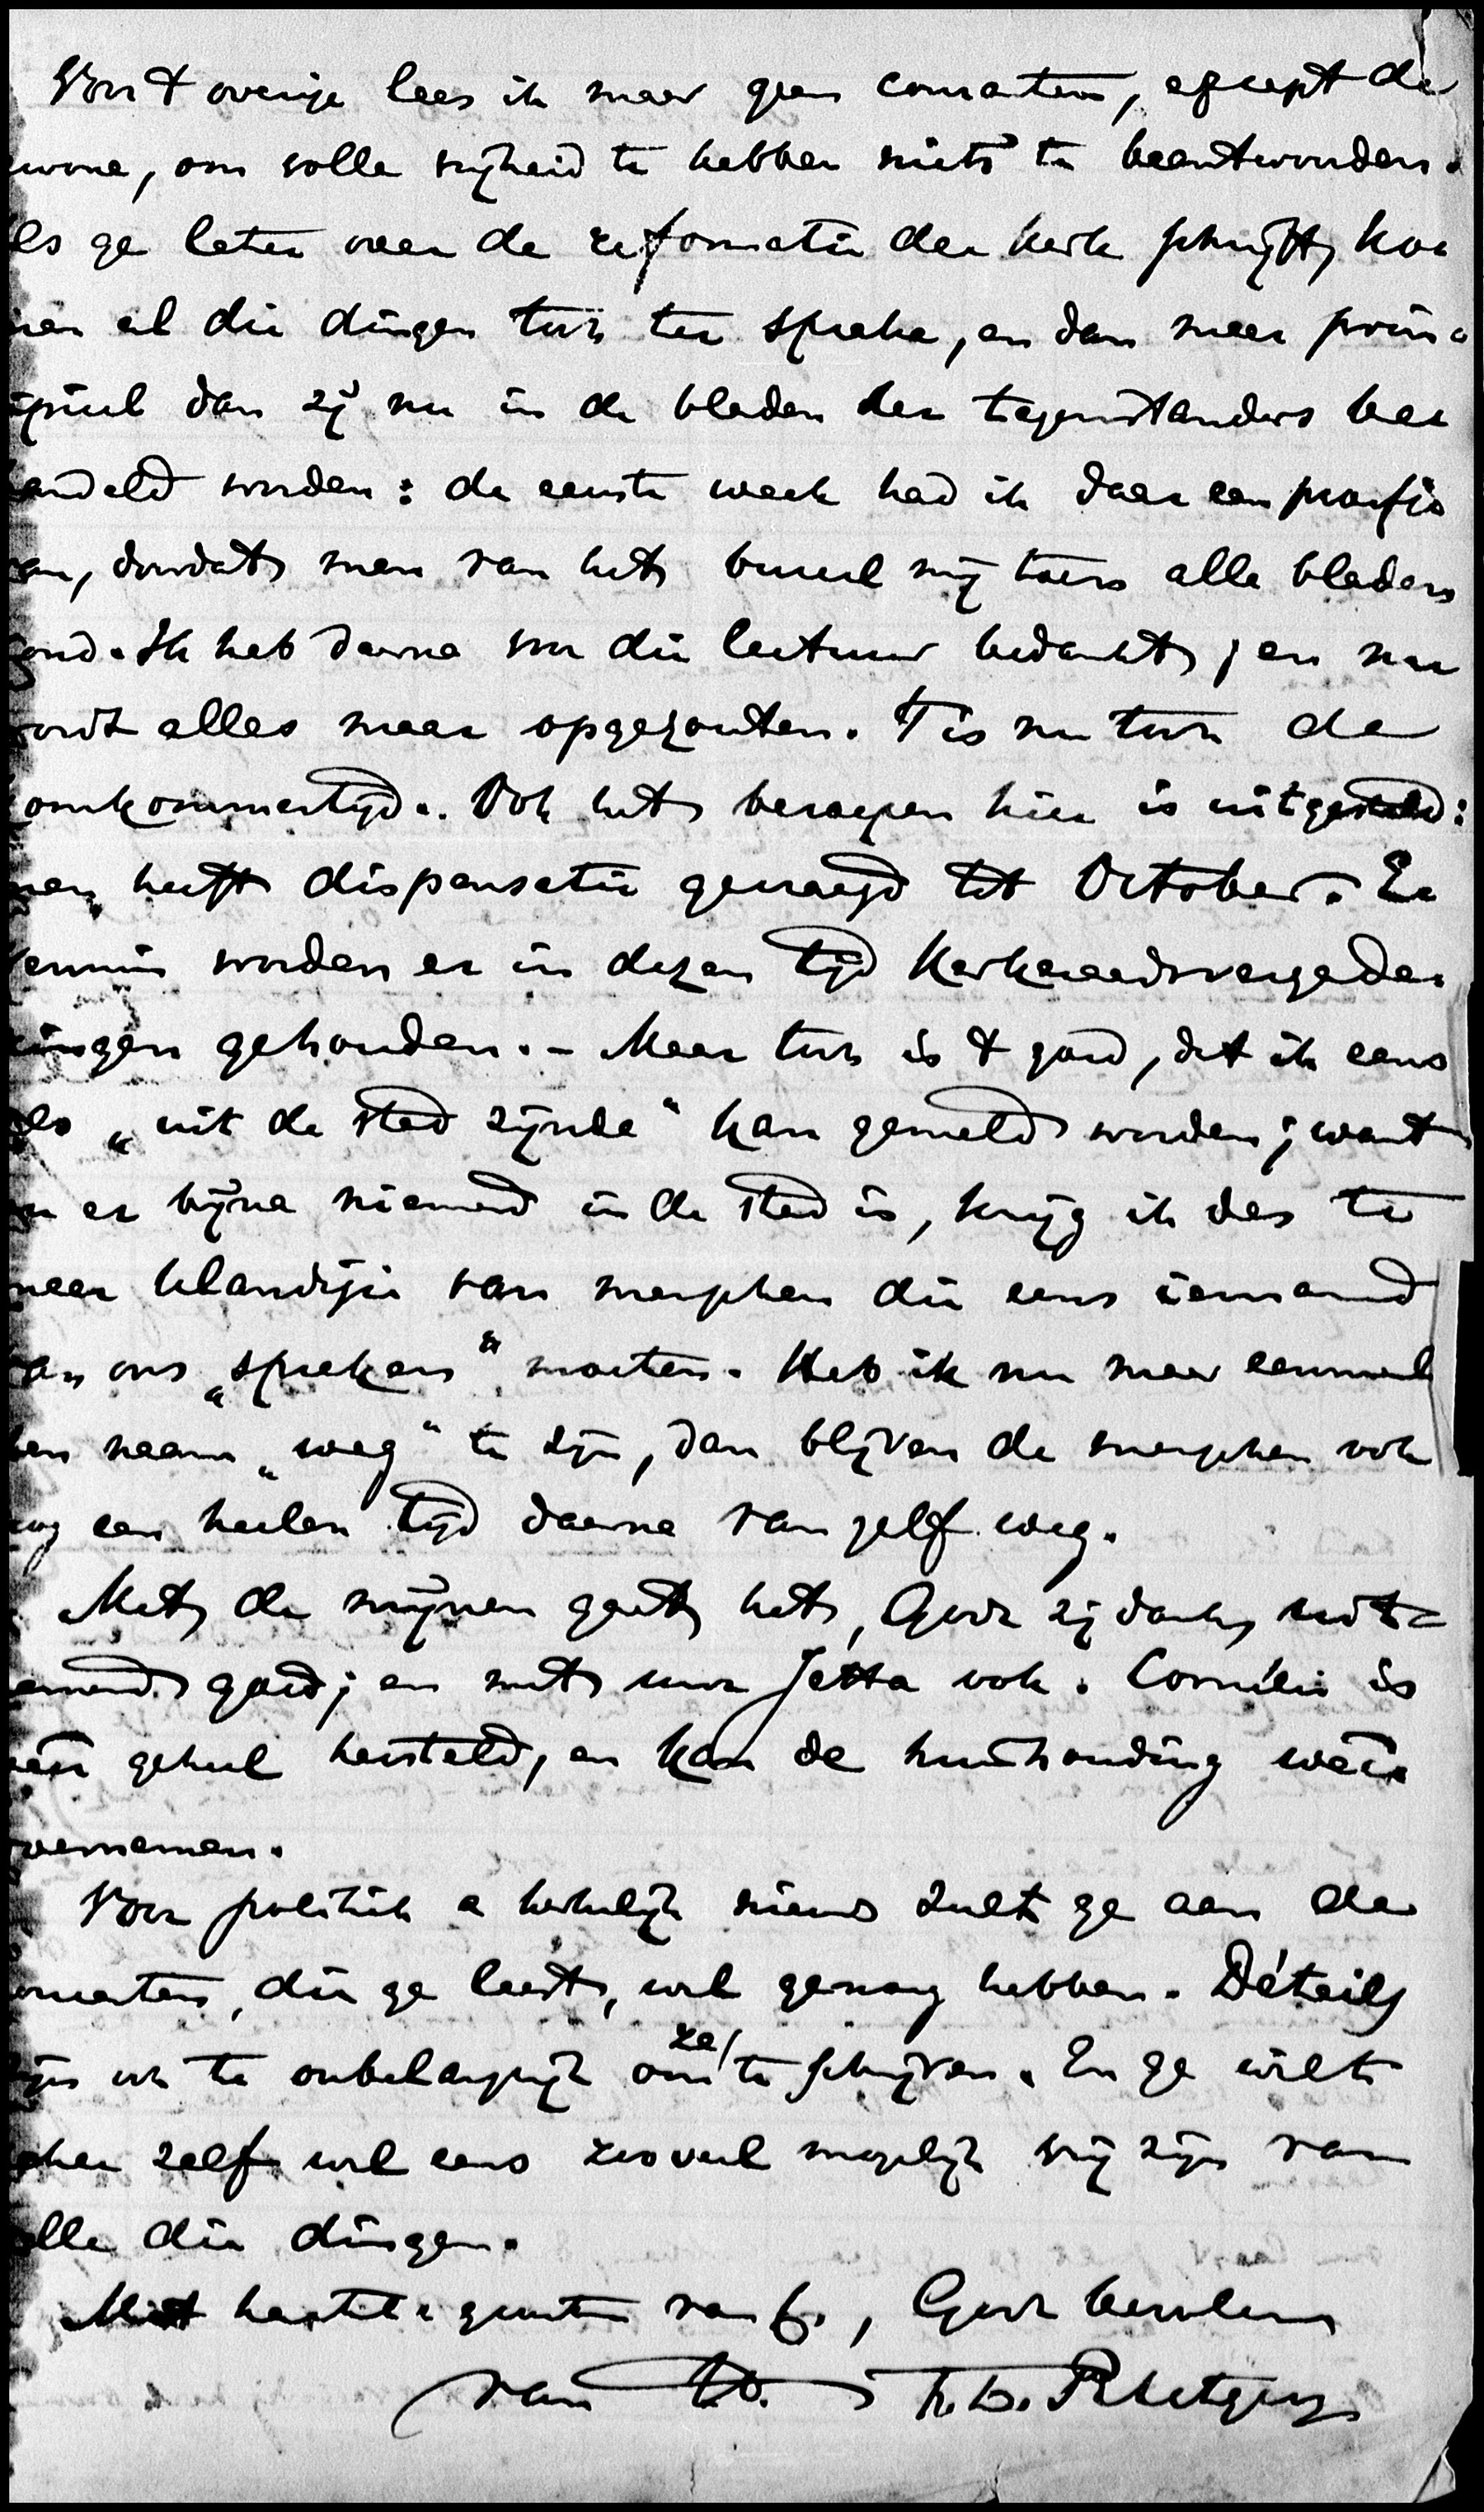 Voor 't overige lees ik maar geen couranten, except de
wone, om volle vrijheid te hebben niets te beantwoorden.
ls ge later over de reformatie der kerk schrijft, ko
men al die dingen toch ter sprake, en dan meer prin=
ipieel dan zij nu in de bladen der tegenstanders be
andeld worden: de eerste week had ik daar een proefje
an, doordat men van het bureel mij toen alle bladen
zond. Ik heb daarna voor die lectuur bedankt; en nu
ordt alles maar opgezouten. 't Is nu toch de
omkommertijd. Ook het beroepen hier is uitgesteld:
men heeft dispensatie gevraagd tot October. E
enmin worden er in dezen tijd Kerkeraadsvergade
ingen gehouden. – Maar toch is 't goed, dat ik eens
ls „uit de stad zijnde" kan gemeld worden; want
u er bijna niemand in de stad is, krijg ik des te
meer klandizie van menschen die eens iemand
an ons „spreken" moeten. Heb ik nu maar eenmaal
den naam „weg" te zijn, dan blijven de menschen ook
nog een heelen tijd daarna van zelf weg.
Met de mijnen gaat het, Gode zij dank, uit=
emend goed; en met uwe Jetta ook. Cornelie is
weer geheel hersteld, en kan de huishouding weer
vernemen.
Voor politiek en kerkelijk nieuws zult ge aan de
ouranten, die ge leest, wel genoeg hebben. Détails
zijn ook te onbelangrijk om ze te schrijven. En ge wilt
zeker zelf wel eens zooveel mogelijk vrij zijn van
lle die dingen.
Met hartel. groeten van , Gode bevolen
van t.t. F. L. Rutgers